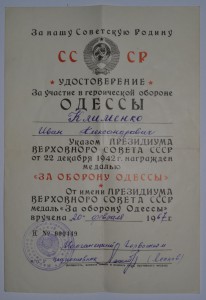 За нашу Советскую Родину
СС СР
УДОСТОВЕРЕНИЕ
За участие в героической обороне
ОДЕССЫ
Клименко
Иван Александрович
Указом ПРЕЗИДИУМА
ВЕРХОВНОГО СОВЕТА СССР
от 22 декабря 1942 г. награжден
медалью
«ЗА ОБОРОНУ ОДЕССЫ»
От имени ПРЕЗИДИУМА
ВЕРХОВНОГО СОВЕТА СССР
медаль «За оборону Одессы»
вручена 20 февраля 1967 г.